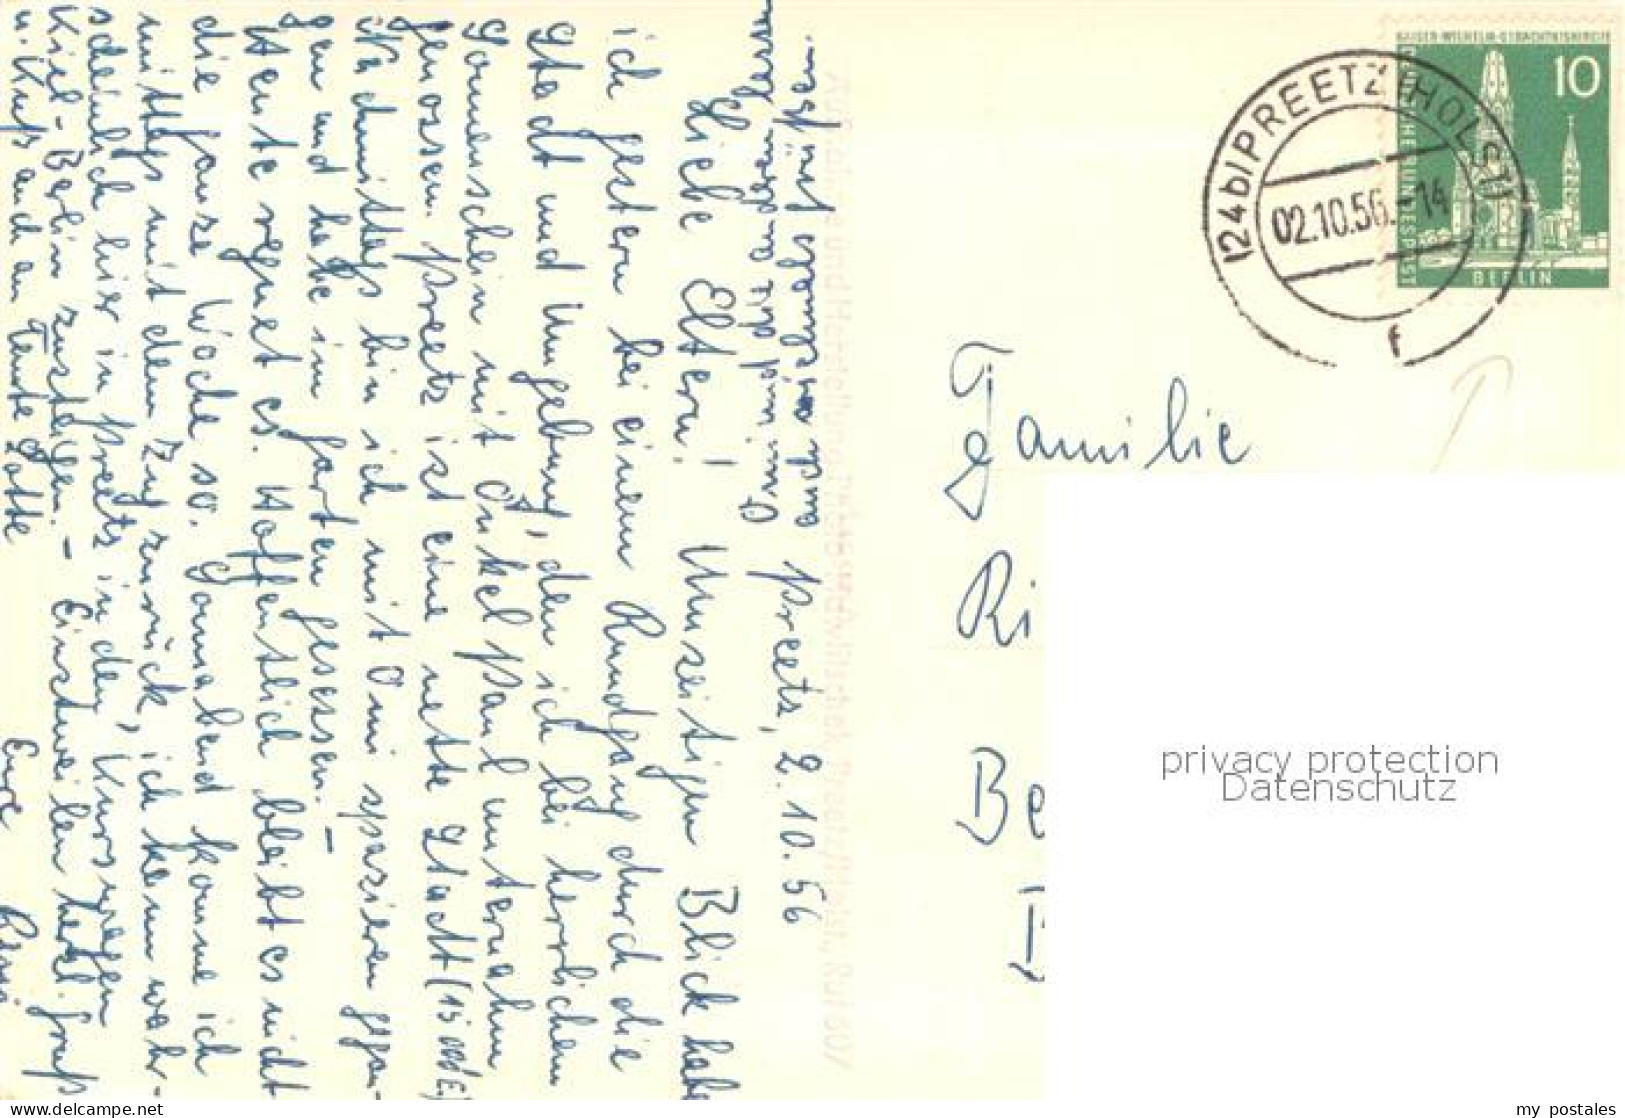 Omi, Pipi u. anderen lassen
auch vielmals grüßen.
Preetz, 2.10.56
Liebe Eltern! Umseitigen Blick habe
ich gestern bei einem Rundgang durch die
Stadt und Umgebung, den ich bei herrlichem
Sonnenschein mit Onkel Paul unternahm
genossen. Preetz ist eine nette Stadt (15 000 E.)
Nachmittags bin ich mit Omi spazieren gegan-
gen und habe im Garten gesessen. –
Heute regnet es. Hoffentlich bleibt es nicht
die ganze Woche so. Sonnabend komme ich
mittags mit dem Zug zurück, ich kann wahr-
scheinlich hier in Preetz in den Kurswagen
Kiel-Berlin zusteigen. – Einstweilen herzl. Gruß
u. Kuß auch an Tante Lotte
Eure
KAISER-WILHELM-GEDÄCHTNISKIRCHE
10
DEUTSCHE BUNDESPOST
BERLIN
(24b) PREETZ (HOLST)
02.10.56.-14
f
Familie
Ri
Be
privacy protection
Datenschutz
my postales